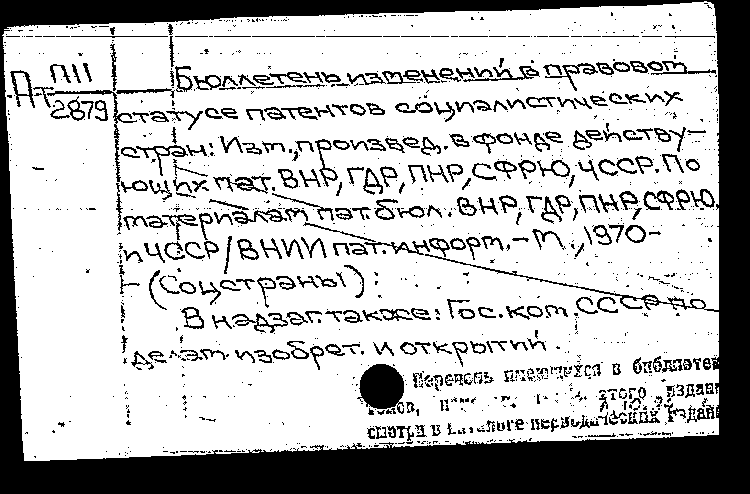 П11
Пт
2879
Бюллетень изменений в правовом
статусе патентов социалистических
стран: Изм., произвед. в фонде действу-
ющих пат. ВНР, ГДР, ПНР, СФРЮ, ЧССР. По
материалам пат. бюл. ВНР, ГДР, ПНР, СФРЮ,
и ЧССР/ВНИИ пат. информ. - М., 1970-
- (Соцстраны)
В надзаг. также: Гос. ком. СССР по
делам изобрет. и открытий.
Перечень имеющихся в библиотек
этого издани
смотри в каталоге периодических издани